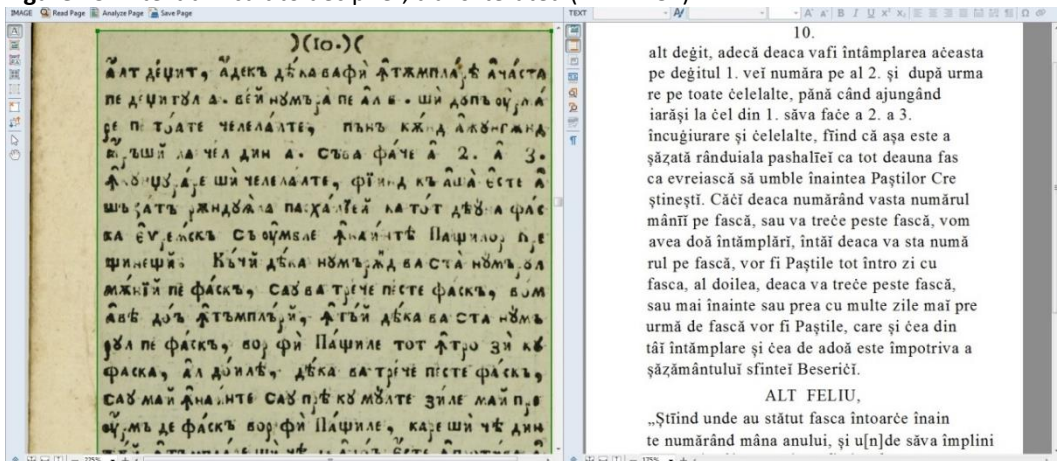 IMAGE Read Page Analyze Page Save Page
)(10.)(
а҆лт де́џит, а҆декъ дѣ́ка вафи̂ ꙟ҆тѫмпла́рѣ а҆ча́ста
пе де́џитꙋл а. ве́й нꙋмъ́ра пе а҆л в. шѝ до́пъ оу҆́рма
ре пе тоа́те челела́лте, пънъ кѫ́нд а҆жꙋнгѫ́нд
ꙗ҆ръшѝ ла че́л дин а. съва фа́че а҆ 2. а҆ 3.
ꙟ҆кꙋнџꙋра́ре шѝ челела́лте, фі́инд къ а҆ша̀ є҆́сте а҆
шъза́тъ рѫндꙋѧ́ла пасха́лїей ка то́т дѣ́ꙋна фа́с
ка є҆vреѧ́скъ съ оу҆́мбле ꙟ҆наи́нтѣ Па́щилѡр Кре
щинещѝ. Къ́чй дѣ́ка нꙋмърѫ́нд ва ста̀ нꙋмъ́рꙋл
мѫ́нїй пе фа́скъ, са́ꙋ ва тре́че пе́сте фа́скъ, во́м
авѣ̀ до́ъ ꙟ҆тѫмплъ́рй, ꙟ҆тѫ́й дѣ́ка ва ста нꙋмъ
рꙋл пе фа́скъ, вор фѝ Па́щиле тот ꙟ҆тро зѝ кꙋ
фаска, а҆л до́илѣ, дѣ́ка ва тре́че пе́сте фа́скъ,
са́ꙋ май ꙟ҆наи́нте са́ꙋ прѣ кꙋ мꙋ́лте зи́ле май пре
оу҆́рмъ де фа́скъ вор фѝ Па́щиле, ка́ре шѝ чѣ дин
TEXT
10.
alt deġit, adecă deaca vafi întâmplarea aċeasta
pe deġitul 1. veĭ număra pe al 2. și după urma
re pe toate ċelelalte, pănă când ajungând
iarăși la ċel din 1. săva faċe a 2. a 3.
încuġiurare și ċelelalte, fîind că așa este a
șăzată rânduiala pashalĭeĭ ca tot deauna fas
ca evreiască să umble înaintea Paștilor Cre
știnești. Căċĭ deaca numărând vasta numărul
mânĭĭ pe fască, sau va treċe peste fască, vom
avea doă întămplărĭ, întăĭ deaca va sta numă
rul pe fască, vor fi Paștile tot întro zi cu
fasca, al doilea, deaca va treċe peste fască,
sau mai înainte sau prea cu multe zile maĭ pre
urmă de fască vor fi Paștile, care și ċea din
tâĭ întămplare și ċea de adoă este împotriva a
șăzământuluĭ sfinteĭ Beseriċĭ.
ALT FELIU,
„Știind unde au stătut fasca întoarċe înain
te numărând mâna anului, și u[n]de săva împlini
175%
175%